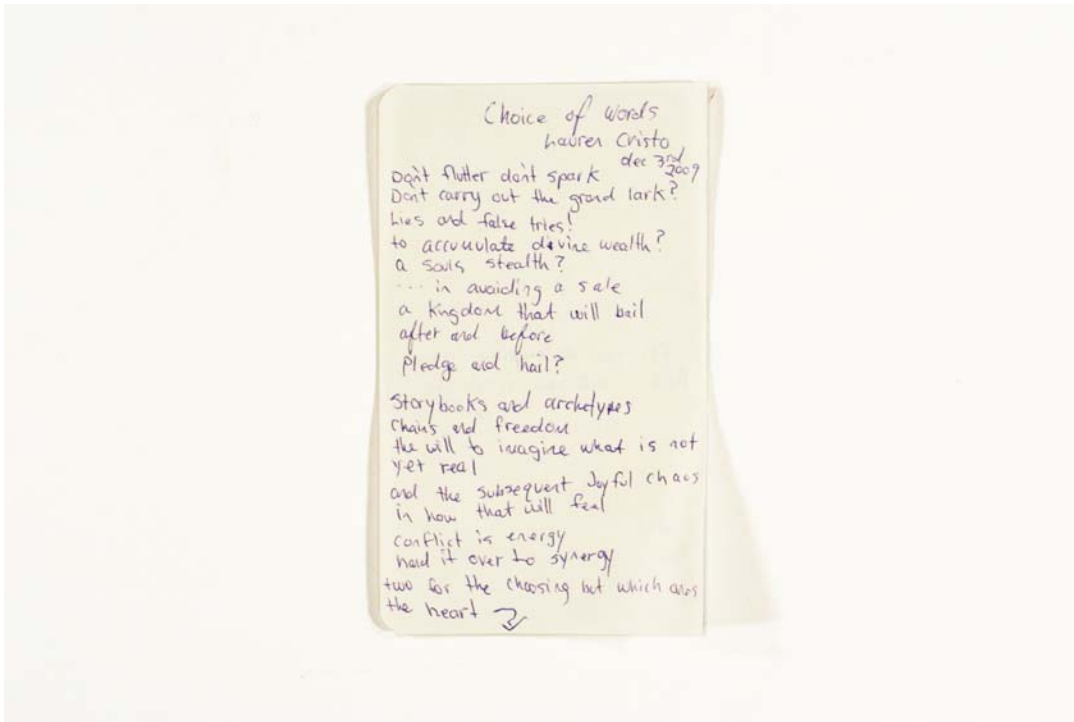 Choice of words
Lauren Cristo
dec 3rd
2009
Don't flutter don't spark
Dont carry out the grand lark?
Lies and false tries!
to accumulate divine wealth?
a souls stealth?
... in avoiding a sale
a kingdom that will bail
after and before
Pledge and hail?
Storybooks and archetypes
Chains and freedom
the will to imagine what is not
yet real
and the subsequent Joyful chaos
in how that will feel
conflict is energy
hand it over to synergy
two for the choosing but which
the heart